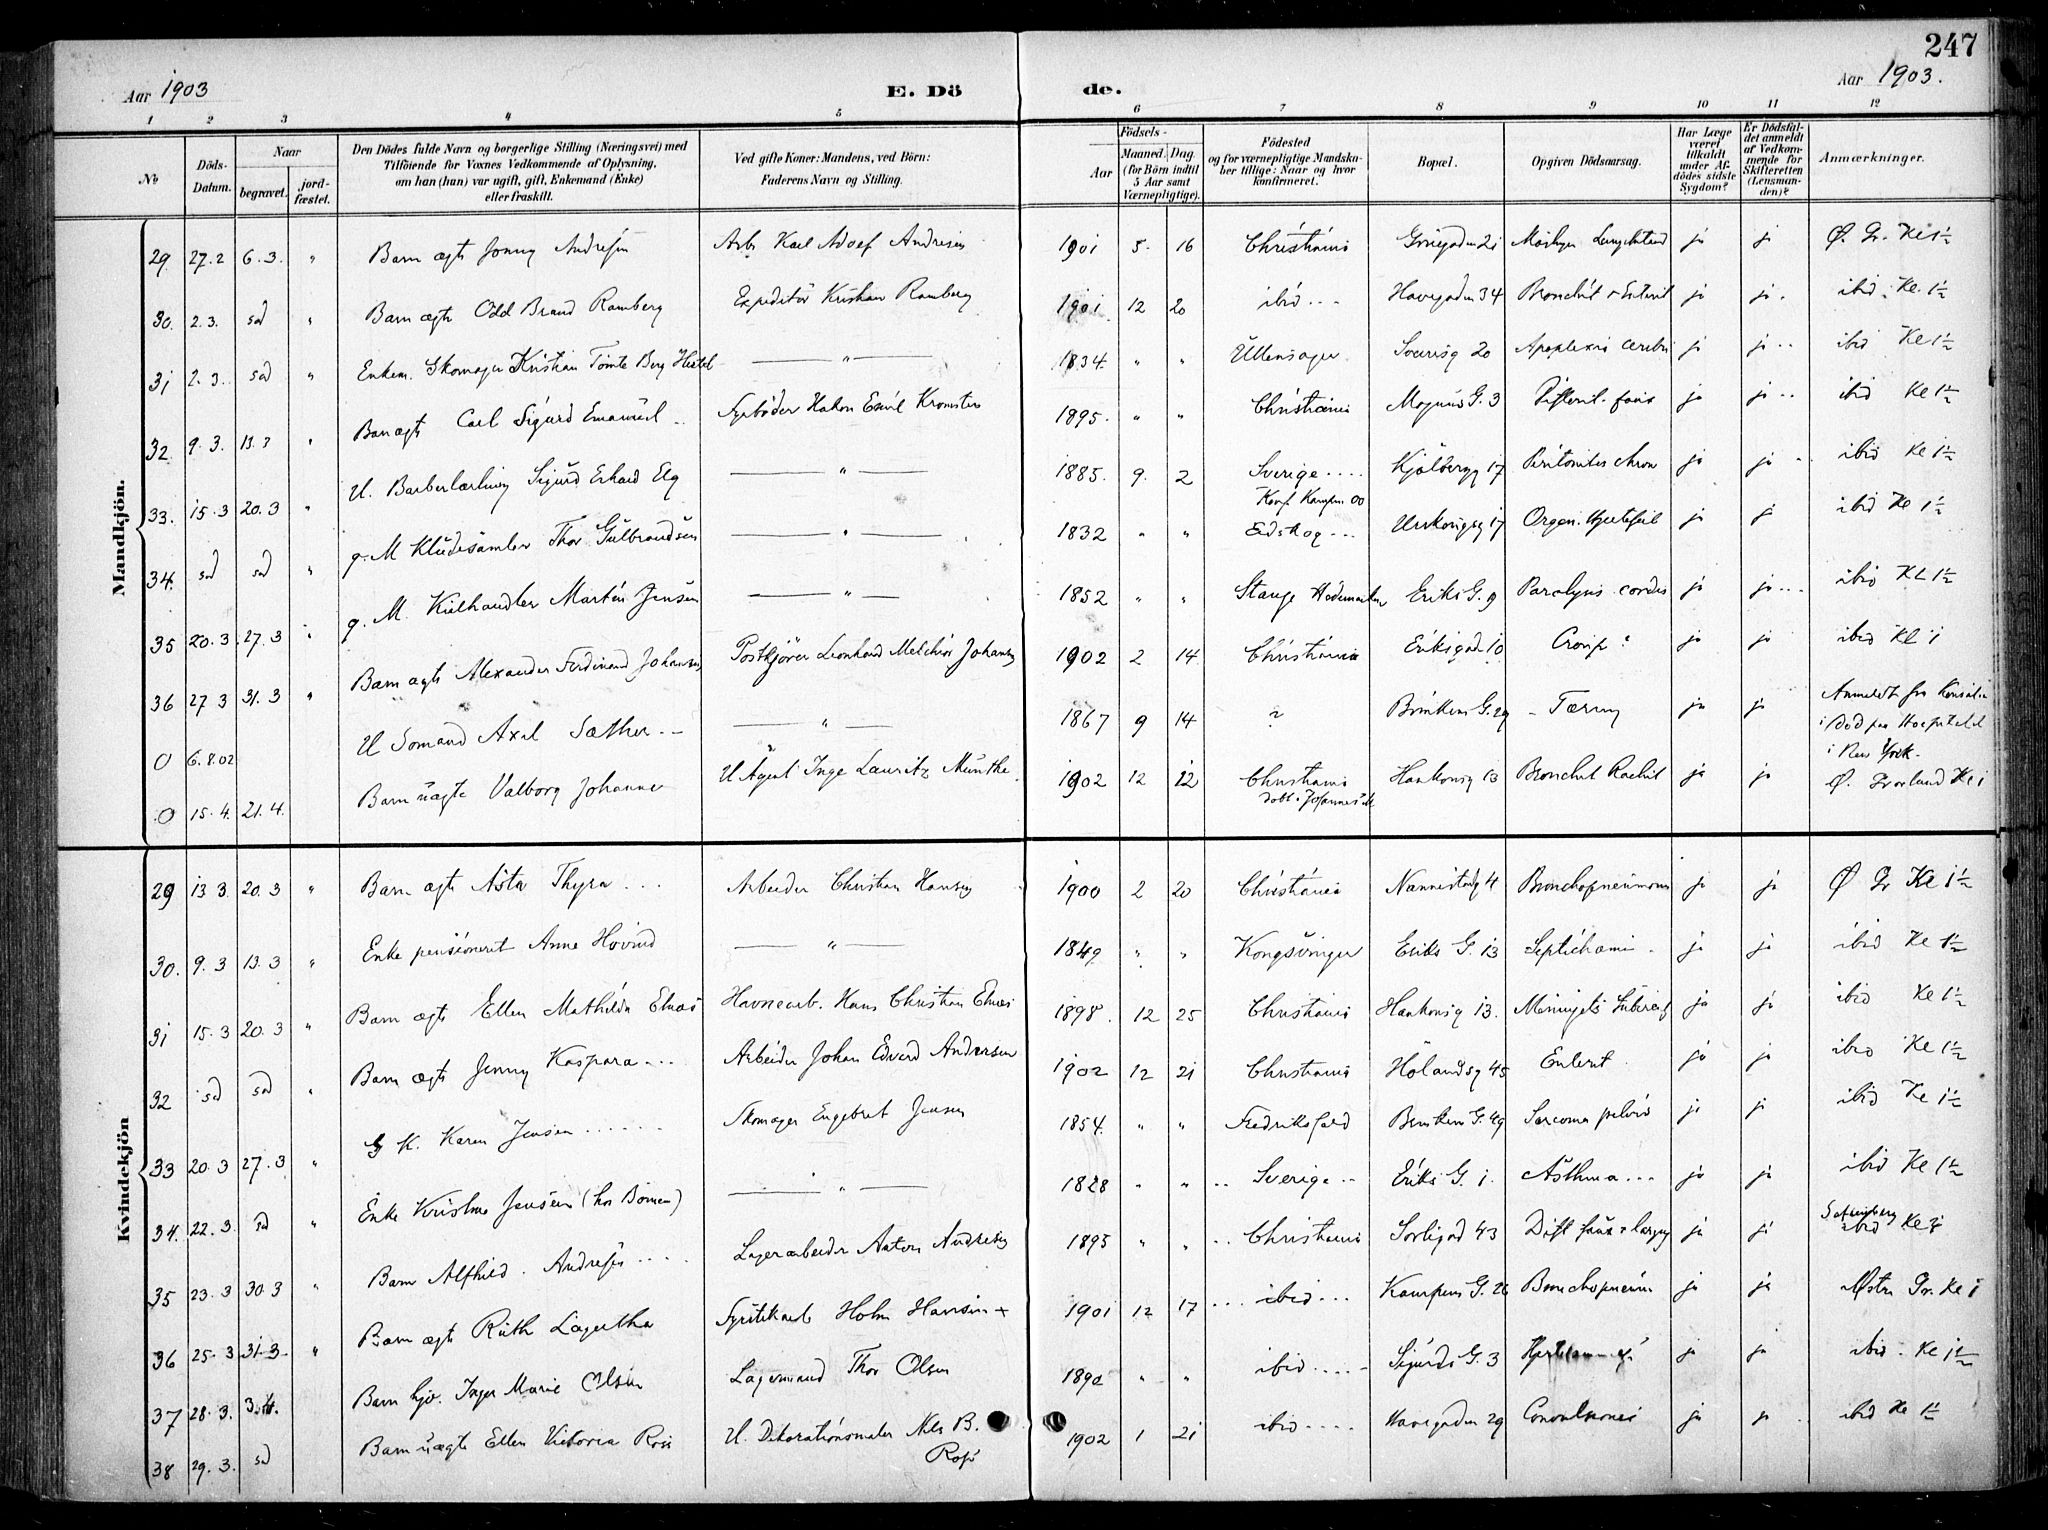 247
Aar 1903
E. Dö de.
Aar 1903.
1 2 3 4 5 6 7 8 9 10 11 12
No
Döds-Datum.
Naar
begravet.
jordfæstet.
Den Dödes fulde Navn og borgerlige Stilling (Næringsvei) med
Tilföiende for Voxnes Vedkommende af Oplysning,
om han (hun) var ugift, gift, Enkemand (Enke)
eller fraskilt.
Ved gifte Koner: Mandens, ved Börn:
Faderens Navn og Stilling.
Födsels-
Aar
Maaned. Dag.
(for Börn indtil
5 Aar samt
Værnepligtige).
Födested
og for værnepligtige Mandska-
ber tillige: Naar og hvor
konfirmeret.
Bopæl.
Opgiven Dödsaarsag.
Har Læge
været
tilkaldt
under Af-
dödes sidste
Sygdom?
Er Dödsfal-
det anmeldt
af Vedkom-
mende for
Skifteretten
(Lensman-
den)?
Anmærkninger.
Mandkjön.
29. 27.2 6.3. " Barn ægte Jonny Andresen Arb. Karl Adolf Andresen 1901 5. 16 Christiania Grönegaden 21 ja ja Ø. Gr. Kl 1½
30. 2.3. sd " Barn ægte Odd Brand Ramberg Expeditör Kristian Ramberg 1901 12 20 ibid Havegaden 34 Bronchit & Enterit ja ja. ibid. Kl. 1½
31 2.3. sd " Enkem. Skomager Kristian Tomte Berg — " — 1834. " " Ullensager Sverresg 20 Apoplexia cerebri ja ja ibid Kl 1½
32. 9.3. 13.3 " Barn ægte Carl Sigurd Emanuel Fyrböder Hakon Emil 1895. " " Christiania Magnus G. 3 ja ja ibid Kl 1½
33. 15.3 20.3 " U. Barberlærling Sigurd Erhard Elg — " — 1885. 9. 2 Sverige
Konf. Kampen 00 Kjölbergg 17 Peritonitis chron ja ja ibid Kl 1½
34. sd sd " g. M Kludesamler Thor Gulbrandsen — " — 1832 " " Eidskog 17 Organ. Hjertefeil ja ja ibid Kl 1½
35 20.3. 27.3 " g. M. Martin Jensen — " — 1852 " " Stange Hedemarken Eriks G. 9 Paralysis cordis ja ja ibid Kl 1½
36 27 3 31.3 " Barn ægte Alexander Ferdinand Johansen Postkjörer Leonhard Melchior Johansen 1902 2 14 Christiania Eriksgad 10 Croup ja ja ibid Kl 1
0 6.8.02 U Sömand Axel Sæther — " — 1867 9 14 ? G. 29 Tæring ja ja Anmeldt fra
i Död paa Hospitalet
i New York.
0 15.4. 21.4. Barn uægte Valborg Johanne U Agent Inge Lauritz Munthe. 1902 12 12 Christiania
Döbt i Johannes k. Haakonsg 13 Bronchit Rachit ja ja Ø. Kl 1
Kvindekjön
29 13 3. 20.3 " Barn ægte Asta Thyra Arbeider Christian Hansen 1900 2 20 Christiania 4 Bronchopneumoni ja ja Ø Gr Kl 1½
30. 9.3 13.3 " Enke pensioneret Anne Hovind — " — 1849 " " Kongsvinger Eriks G. 13 Septichæmi ja ja ibid Kl 1½
31 15.3 20.3 " Barn ægte Ellen Mathilde Havnearb. Hans Christian 1898. 12 25 Christiania Haakonsg 13. ja ja ibid Kl 1½
32 sd sd " Barn ægte Jenny Kaspara Arbeider Johan Edvard Andersen 1902 12 21 Christiania Hölandsg 45 Enterit ja ja ibid Kl 1½
33 20.3 27.3 " G K. Karen Jensen Skomager Engebret Jensen 1854. " " Fredrikshald G. 49 Sarcoma pelvis ja ja ibid Kl 1½
34. 22.3. sd " Enke Kristine Jensen (hos Börnene) — " — 1828 " " Sverige Eriks G. 1. Asthma ja ja ibid Kl 1½
35 23.3 30.3 " Barn Alfhild Andresen Lagerarbeider Anton Andresen 1895 " " Christiania Sorligad 43 ja ja ibid Kl
36 25.3 31.3 " Barn ægte Ruth Lagertha Holm Hansen + 1901 12 17 ibid Kampens G. 26 Bronchopneum ja ja Østre Gr. Kl 1
37 28.3. 3.4. Barn Inger Marie Olsen Lagermand Thor Olsen " " ibid Sigurds G. 3 ja ja ibid. Kl 1½
38 29.3. sd Barn uægte Ellen Victoria U. Dekorationsmaler Nils B. 1902 1 21 ibid Havegaden 29 Convulsiones ja ja ibid Kl 1½